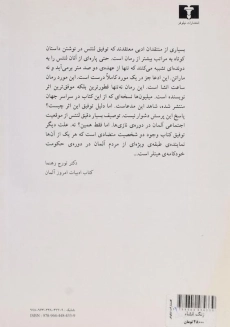 انتشارات نیلوفر
بسیاری از منتقدان ادبی معتقدند که توفیق لنتس در نوشتن داستان
کوتاه به مراتب بیشتر از رمان است. حتی پاره‌ای از آنان لنتس را به
دونده‌ای تشبیه می‌کنند که تنها از عهده‌ی دوصد متر برمی‌آید و نه
ماراتن. این ادعا جز در یک مورد کاملاً درست است. این مورد رمان
ساعت انشا است. این رمان نه‌تنها قطورترین بلکه موفق‌ترین اثر
نویسنده است. میلیون‌ها نسخه‌ای که از این کتاب در سراسر جهان
منتشر شده، شاهد این مدعاست. اما دلیل توفیق این اثر چیست؟
پاسخ این پرسش دشوار نیست. توصیف بسیار دقیق لنتس از موقعیت
اجتماعی آلمان در دوره‌ی نازی‌ها. اما فقط همین؟ نه. علت دیگر
توفیق کتاب وجود دو شخصیت متضادی است که هر یک از آن‌ها
نماینده‌ی طبقه‌ی ویژه‌ای از مردم آلمان در دوره‌ی حکومت
خودکامه‌ی هیتلر است.
دکتر تورج رهنما
کتاب ادبیات امروز آلمان
زنگ انشاء
تومان